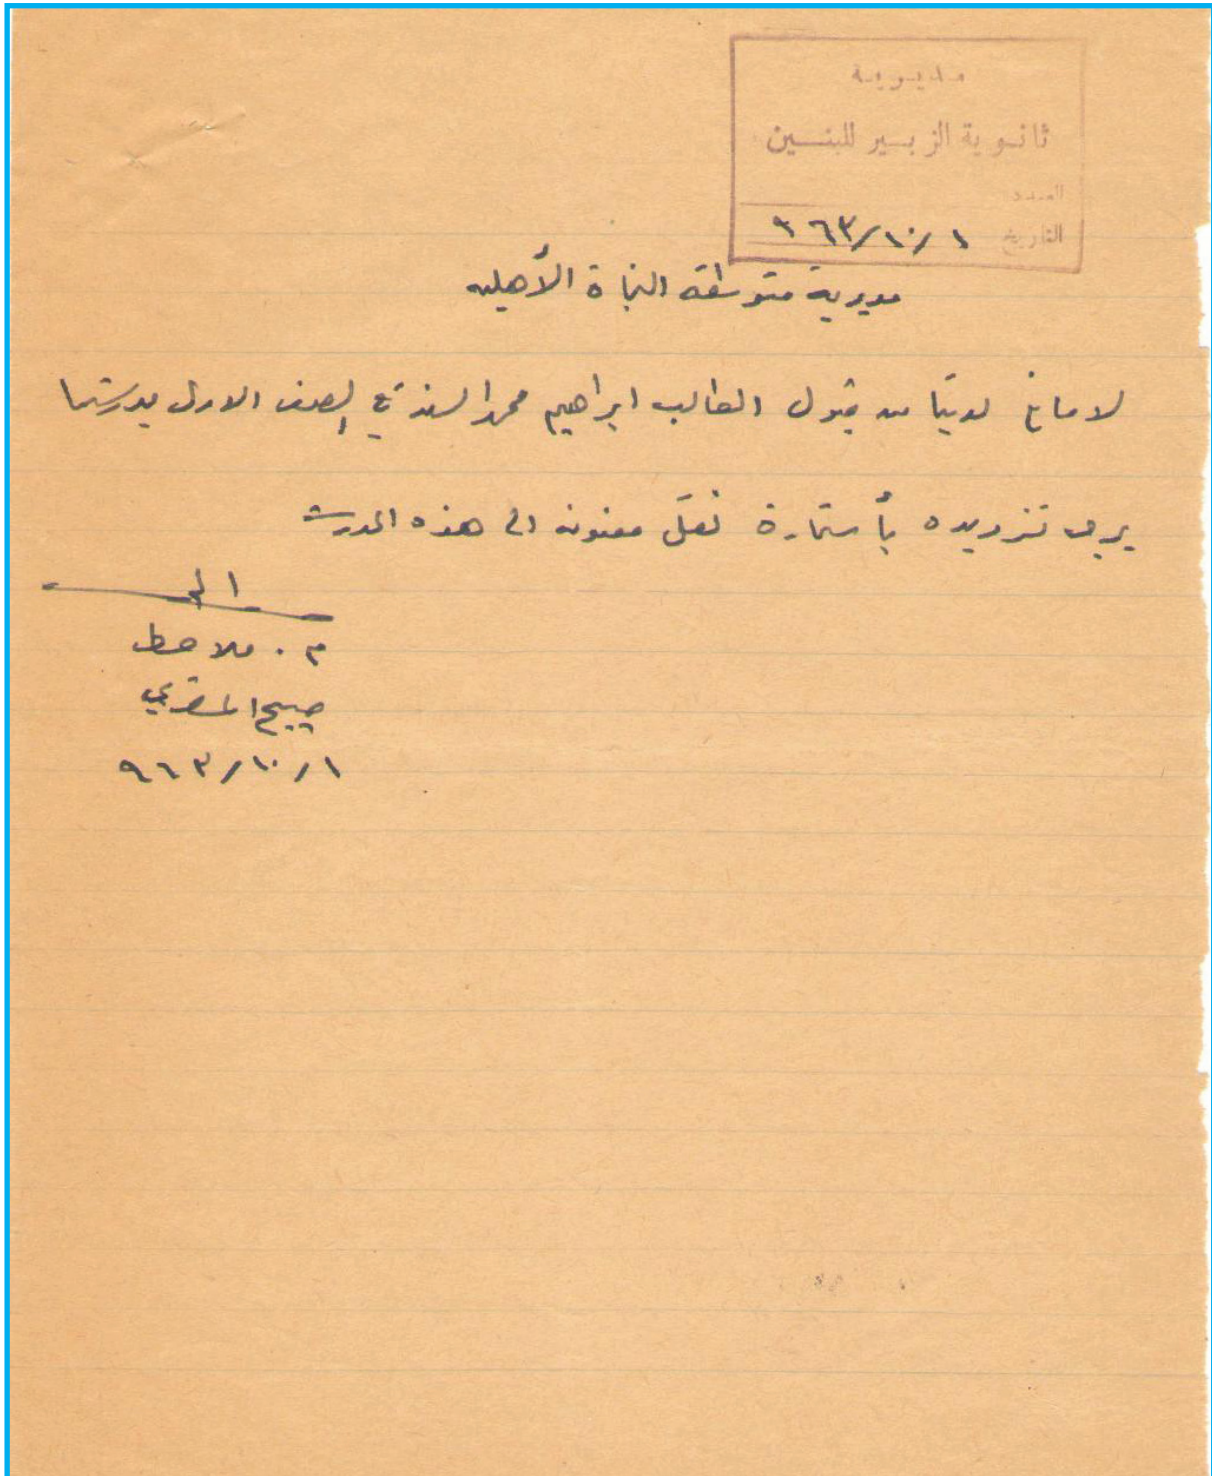 مديرية
ثانوية الزبير للبنين
العدد
التاريخ ١/١٠/٩٦٣
مديرية متوسطة النجاة الأهلية
لا مانع لدينا من قبول الطالب ابراهيم محمد السند في الصف الاول بمدرستنا
يرجى تزويده بأستمارة نقل معنونه الى هذه المدرسة
م. ملاحظ
صبيح
١/١٠/٩٦٣